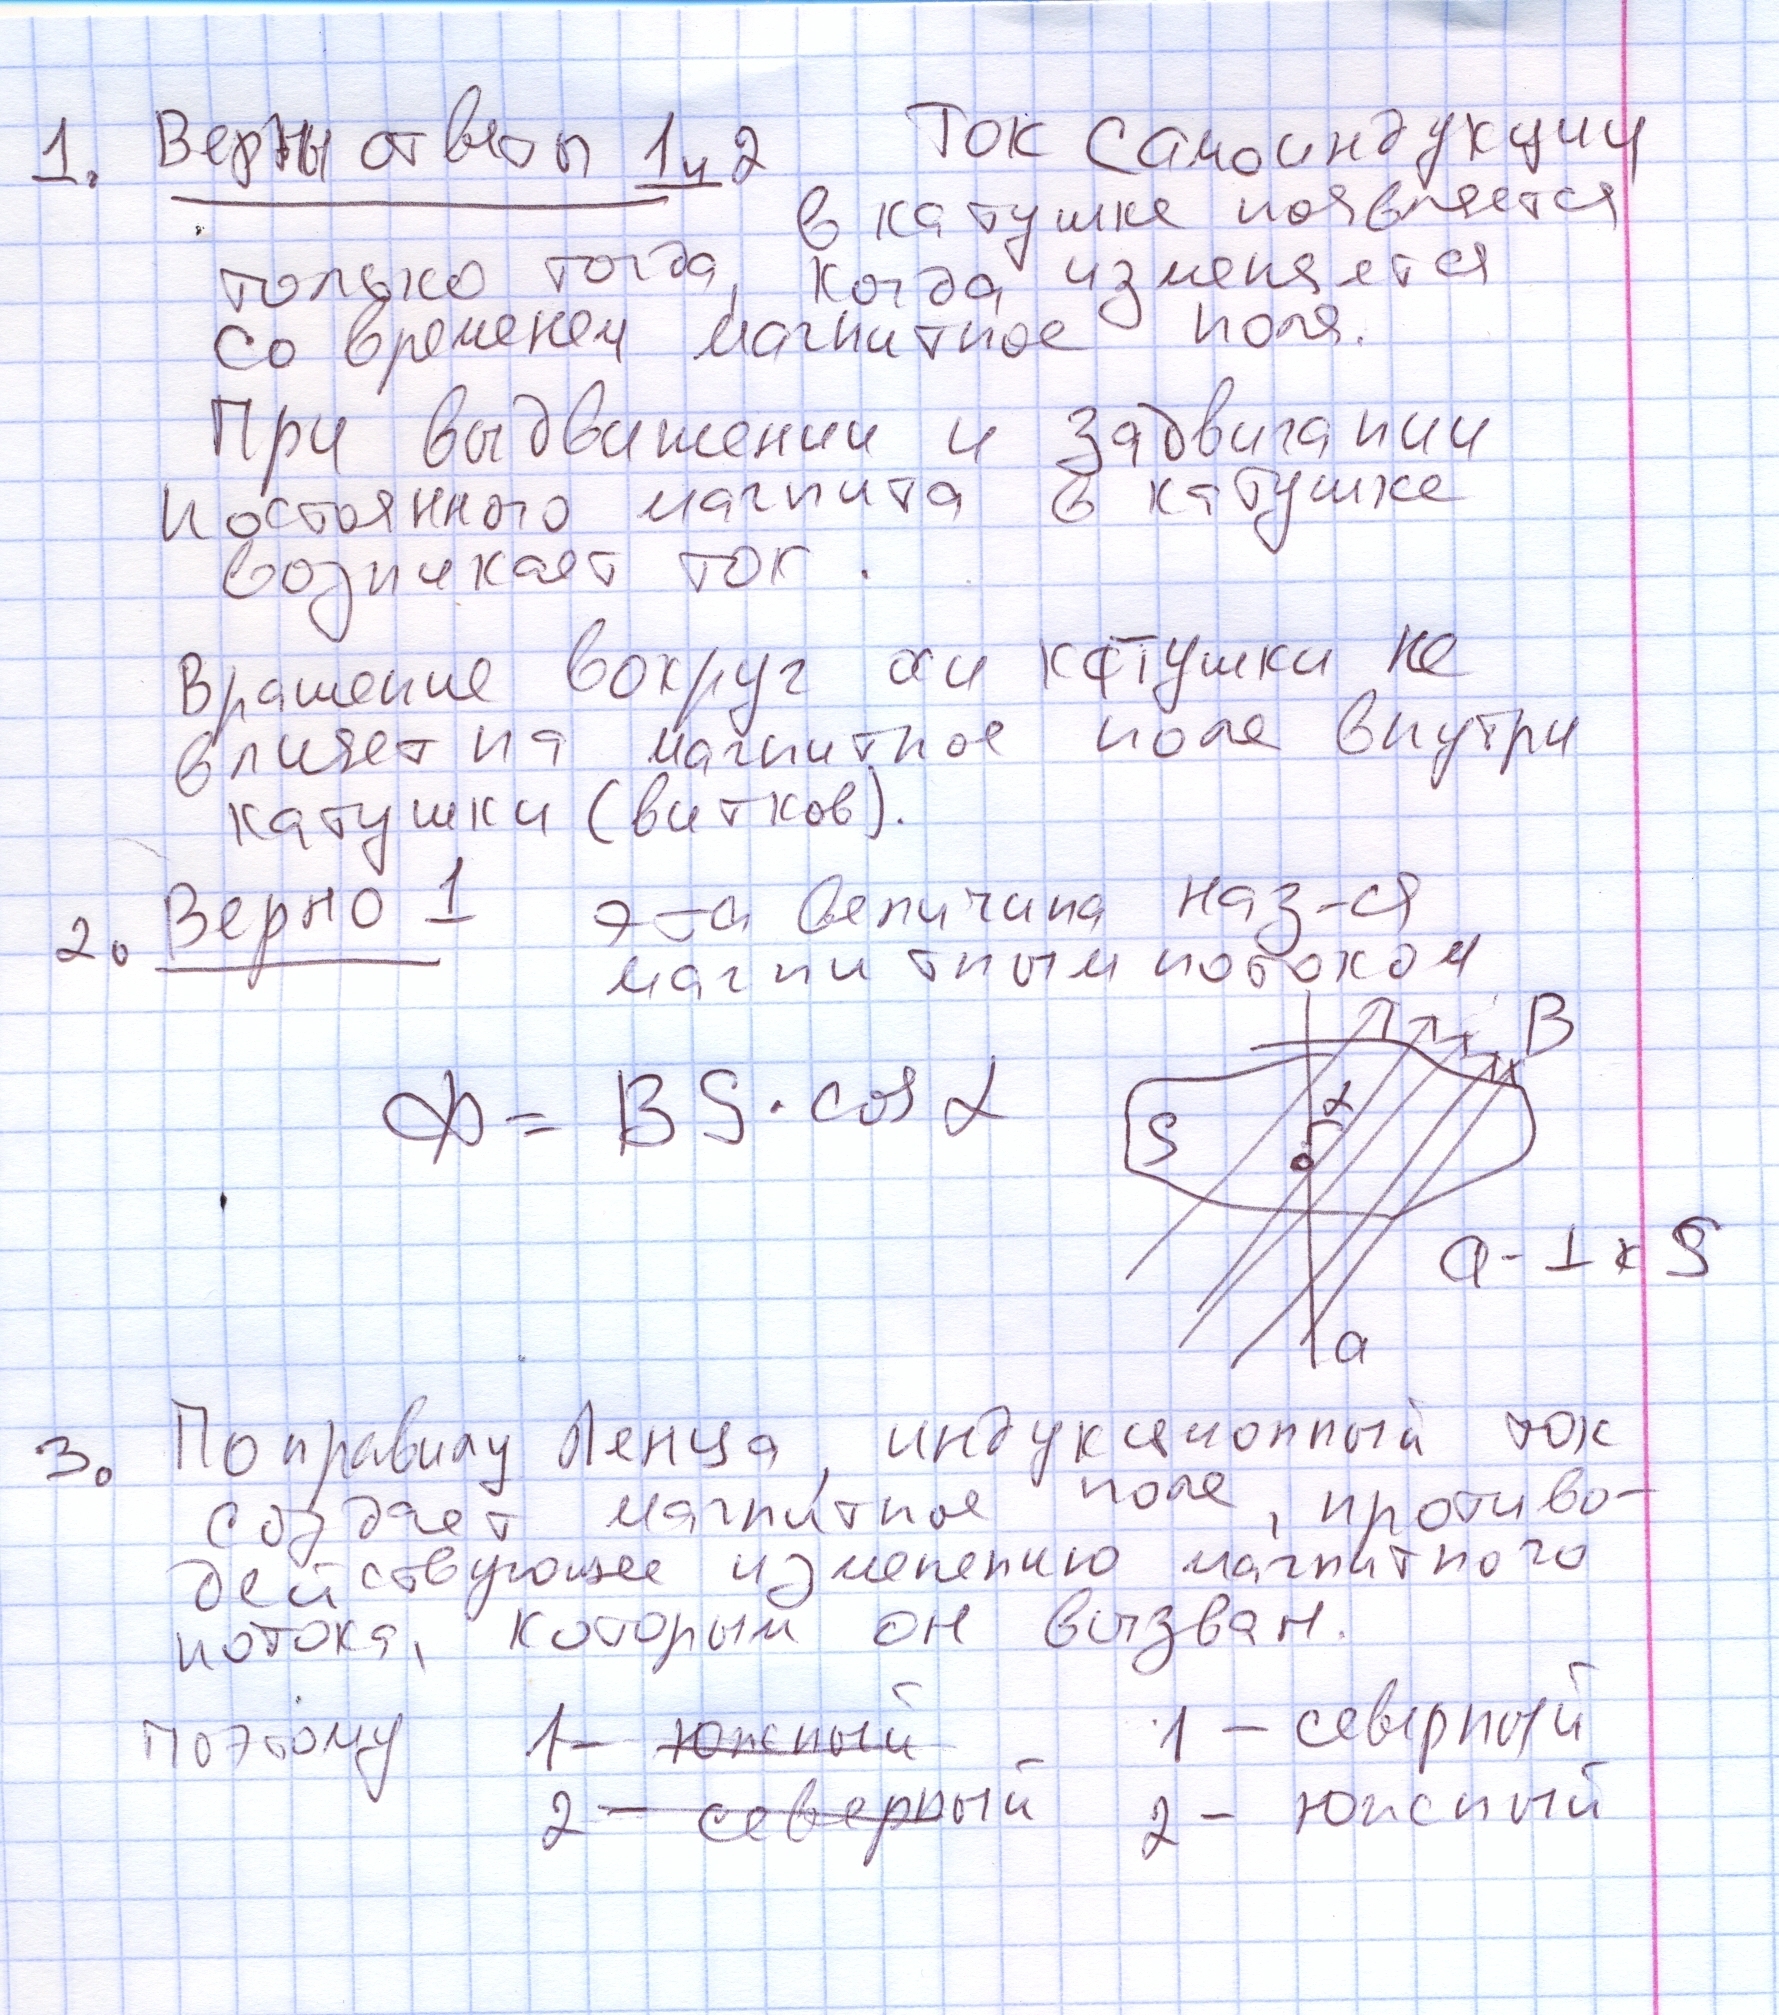 1. Верны ответы 1 и 2 Ток самоиндукции
в катушке появляется
только тогда, когда изменяется
со временем магнитное поля.
При выдвижении и задвигании
постоянного магнита в катушке
возникает ток.
Вращение вокруг оси катушки не
влияет на магнитное поле внутри
катушки (витков).
2. Верно 1 эта величина наз-ся
магнитным потоком
Ф = BS · cos α
B
α
S
a - ⊥ к S
a
3. По правилу Ленца, индукционный ток
создает магнитное поле, противо-
действующее изменению магнитного
потока, которым он вызван.
Поэтому 1 – южный 1 – северный
2 – северный 2 – южный